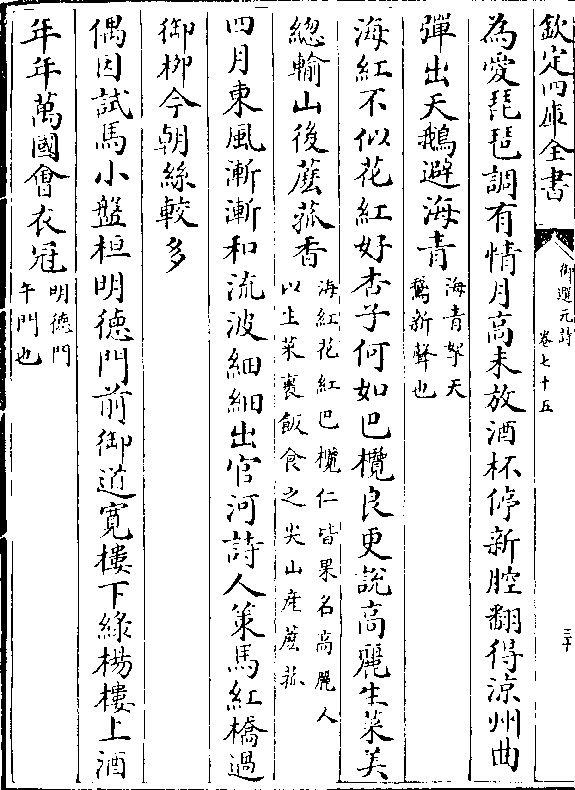 欽定四庫全書
御選元詩
卷七十五
三十
為愛琵琶調有情月高未放酒杯停新腔翻得涼州曲
彈出天鵝避海青
海青拏天
鵝新聲也
海紅不似花紅好杏子何如巴欖良更說高麗生菜美
總輸山後䕲菰香
海紅花紅巴欖仁皆果名高麗人
以生菜裹飯食之尖山產䕲菰
四月東風漸漸和流波細細出官河詩人策馬紅橋過
御柳今朝絲較多
偶因試馬小盤桓明德門前御道寬樓下綠楊樓上酒
年年萬國會衣冠
明德門
午門也